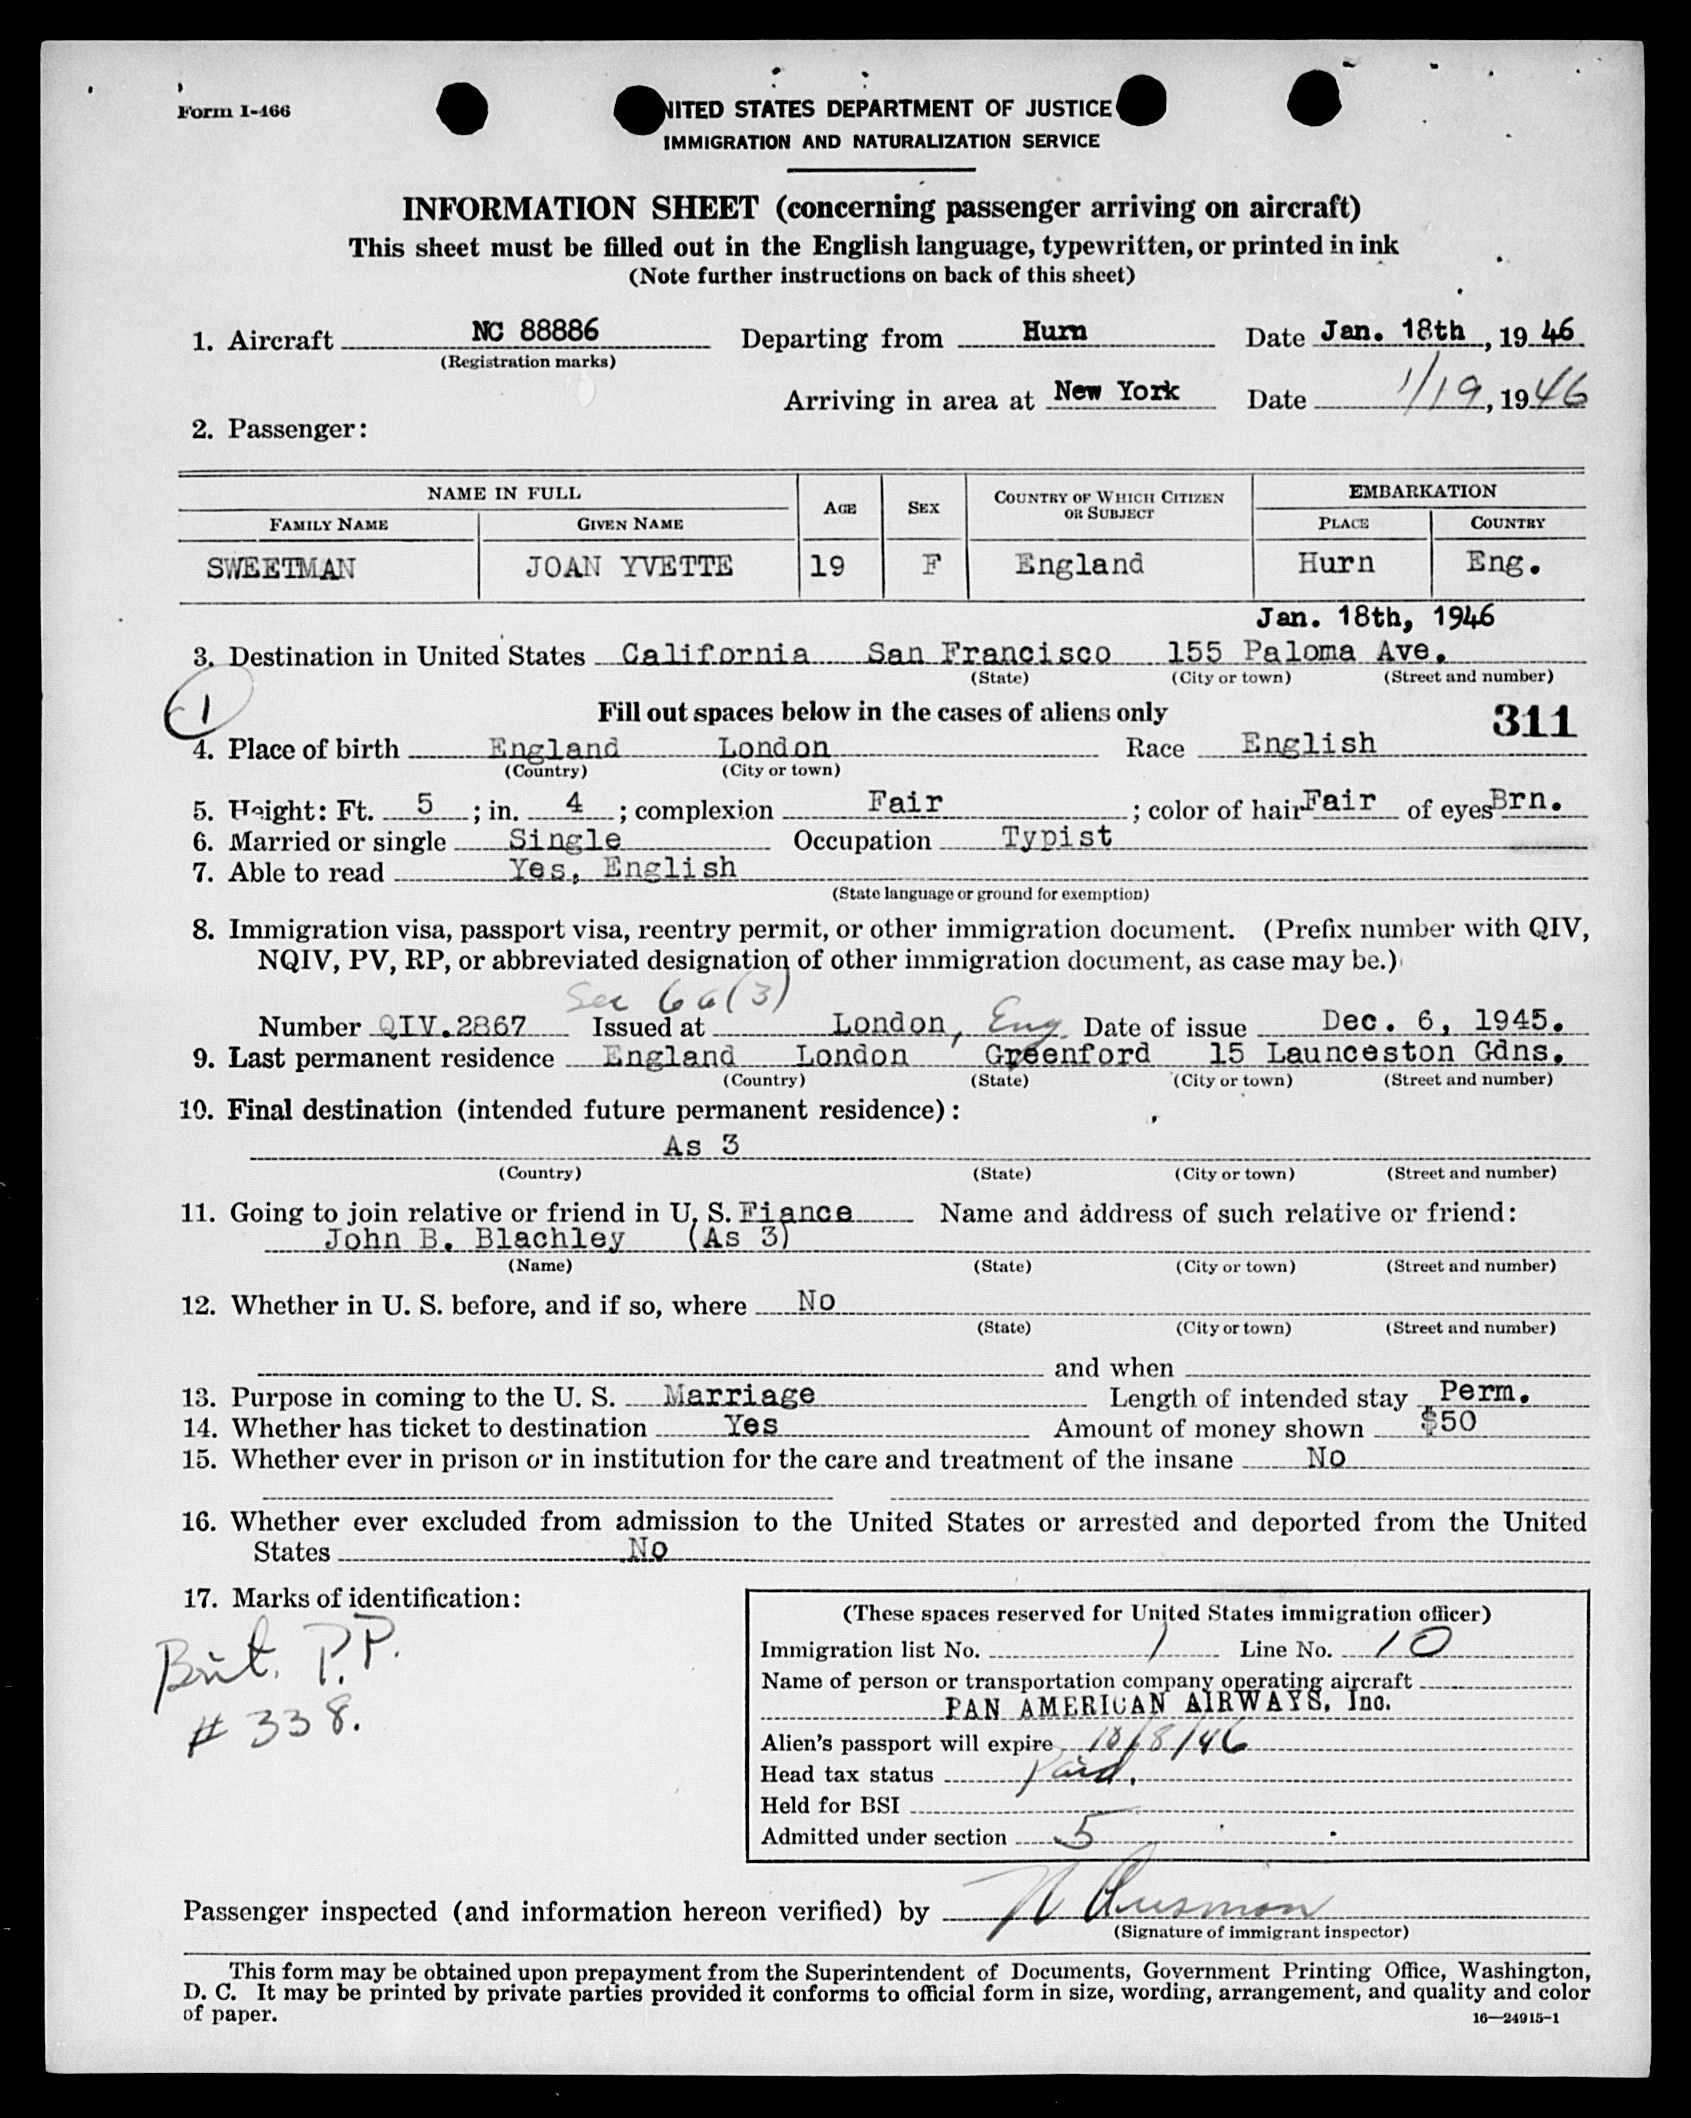 Form I-466
UNITED STATES DEPARTMENT OF JUSTICE
IMMIGRATION AND NATURALIZATION SERVICE
INFORMATION SHEET (concerning passenger arriving on aircraft)
This sheet must be filled out in the English language, typewritten, or printed in ink
(Note further instructions on back of this sheet)
1. Aircraft NC 88886 Departing from Hurn Date Jan. 18th, 1946
(Registration marks)
Arriving in area at New York Date 1/19, 1946
2. Passenger:
NAME IN FULL AGE SEX COUNTRY OF WHICH CITIZEN OR SUBJECT EMBARKATION
FAMILY NAME GIVEN NAME PLACE COUNTRY
SWEETMAN JOAN YVETTE 19 F England Hurn Eng.
Jan. 18th, 1946
3. Destination in United States California San Francisco 155 Paloma Ave.
(State) (City or town) (Street and number)
1
Fill out spaces below in the cases of aliens only 311
4. Place of birth England London Race English
(Country) (City or town)
5. Height: Ft. 5 ; in. 4 ; complexion Fair ; color of hair Fair of eyes Brn.
6. Married or single Single Occupation Typist
7. Able to read Yes, English
(State language or ground for exemption)
8. Immigration visa, passport visa, reentry permit, or other immigration document. (Prefix number with QIV,
NQIV, PV, RP, or abbreviated designation of other immigration document, as case may be.)
Sec 6a(3)
Number QIV.2867 Issued at London, Eng. Date of issue Dec. 6, 1945.
9. Last permanent residence England London Greenford 15 Launceston Gdns.
(Country) (State) (City or town) (Street and number)
10. Final destination (intended future permanent residence):
As 3
(Country) (State) (City or town) (Street and number)
11. Going to join relative or friend in U. S. Fiance Name and address of such relative or friend:
John B. Blachley (As 3)
(Name) (State) (City or town) (Street and number)
12. Whether in U. S. before, and if so, where No
(State) (City or town) (Street and number)
and when
13. Purpose in coming to the U. S. Marriage Length of intended stay Perm.
14. Whether has ticket to destination Yes Amount of money shown $50
15. Whether ever in prison or in institution for the care and treatment of the insane No
16. Whether ever excluded from admission to the United States or arrested and deported from the United
States No
17. Marks of identification:
Brit. P.P.
# 338.
(These spaces reserved for United States immigration officer)
Immigration list No. 1 Line No. 10
Name of person or transportation company operating aircraft
PAN AMERICAN AIRWAYS, Inc.
Alien's passport will expire 10/8/46
Head tax status Paid.
Held for BSI
Admitted under section 5
Passenger inspected (and information hereon verified) by
(Signature of immigrant inspector)
This form may be obtained upon prepayment from the Superintendent of Documents, Government Printing Office, Washington,
D. C. It may be printed by private parties provided it conforms to official form in size, wording, arrangement, and quality and color
of paper.
16—24915-1